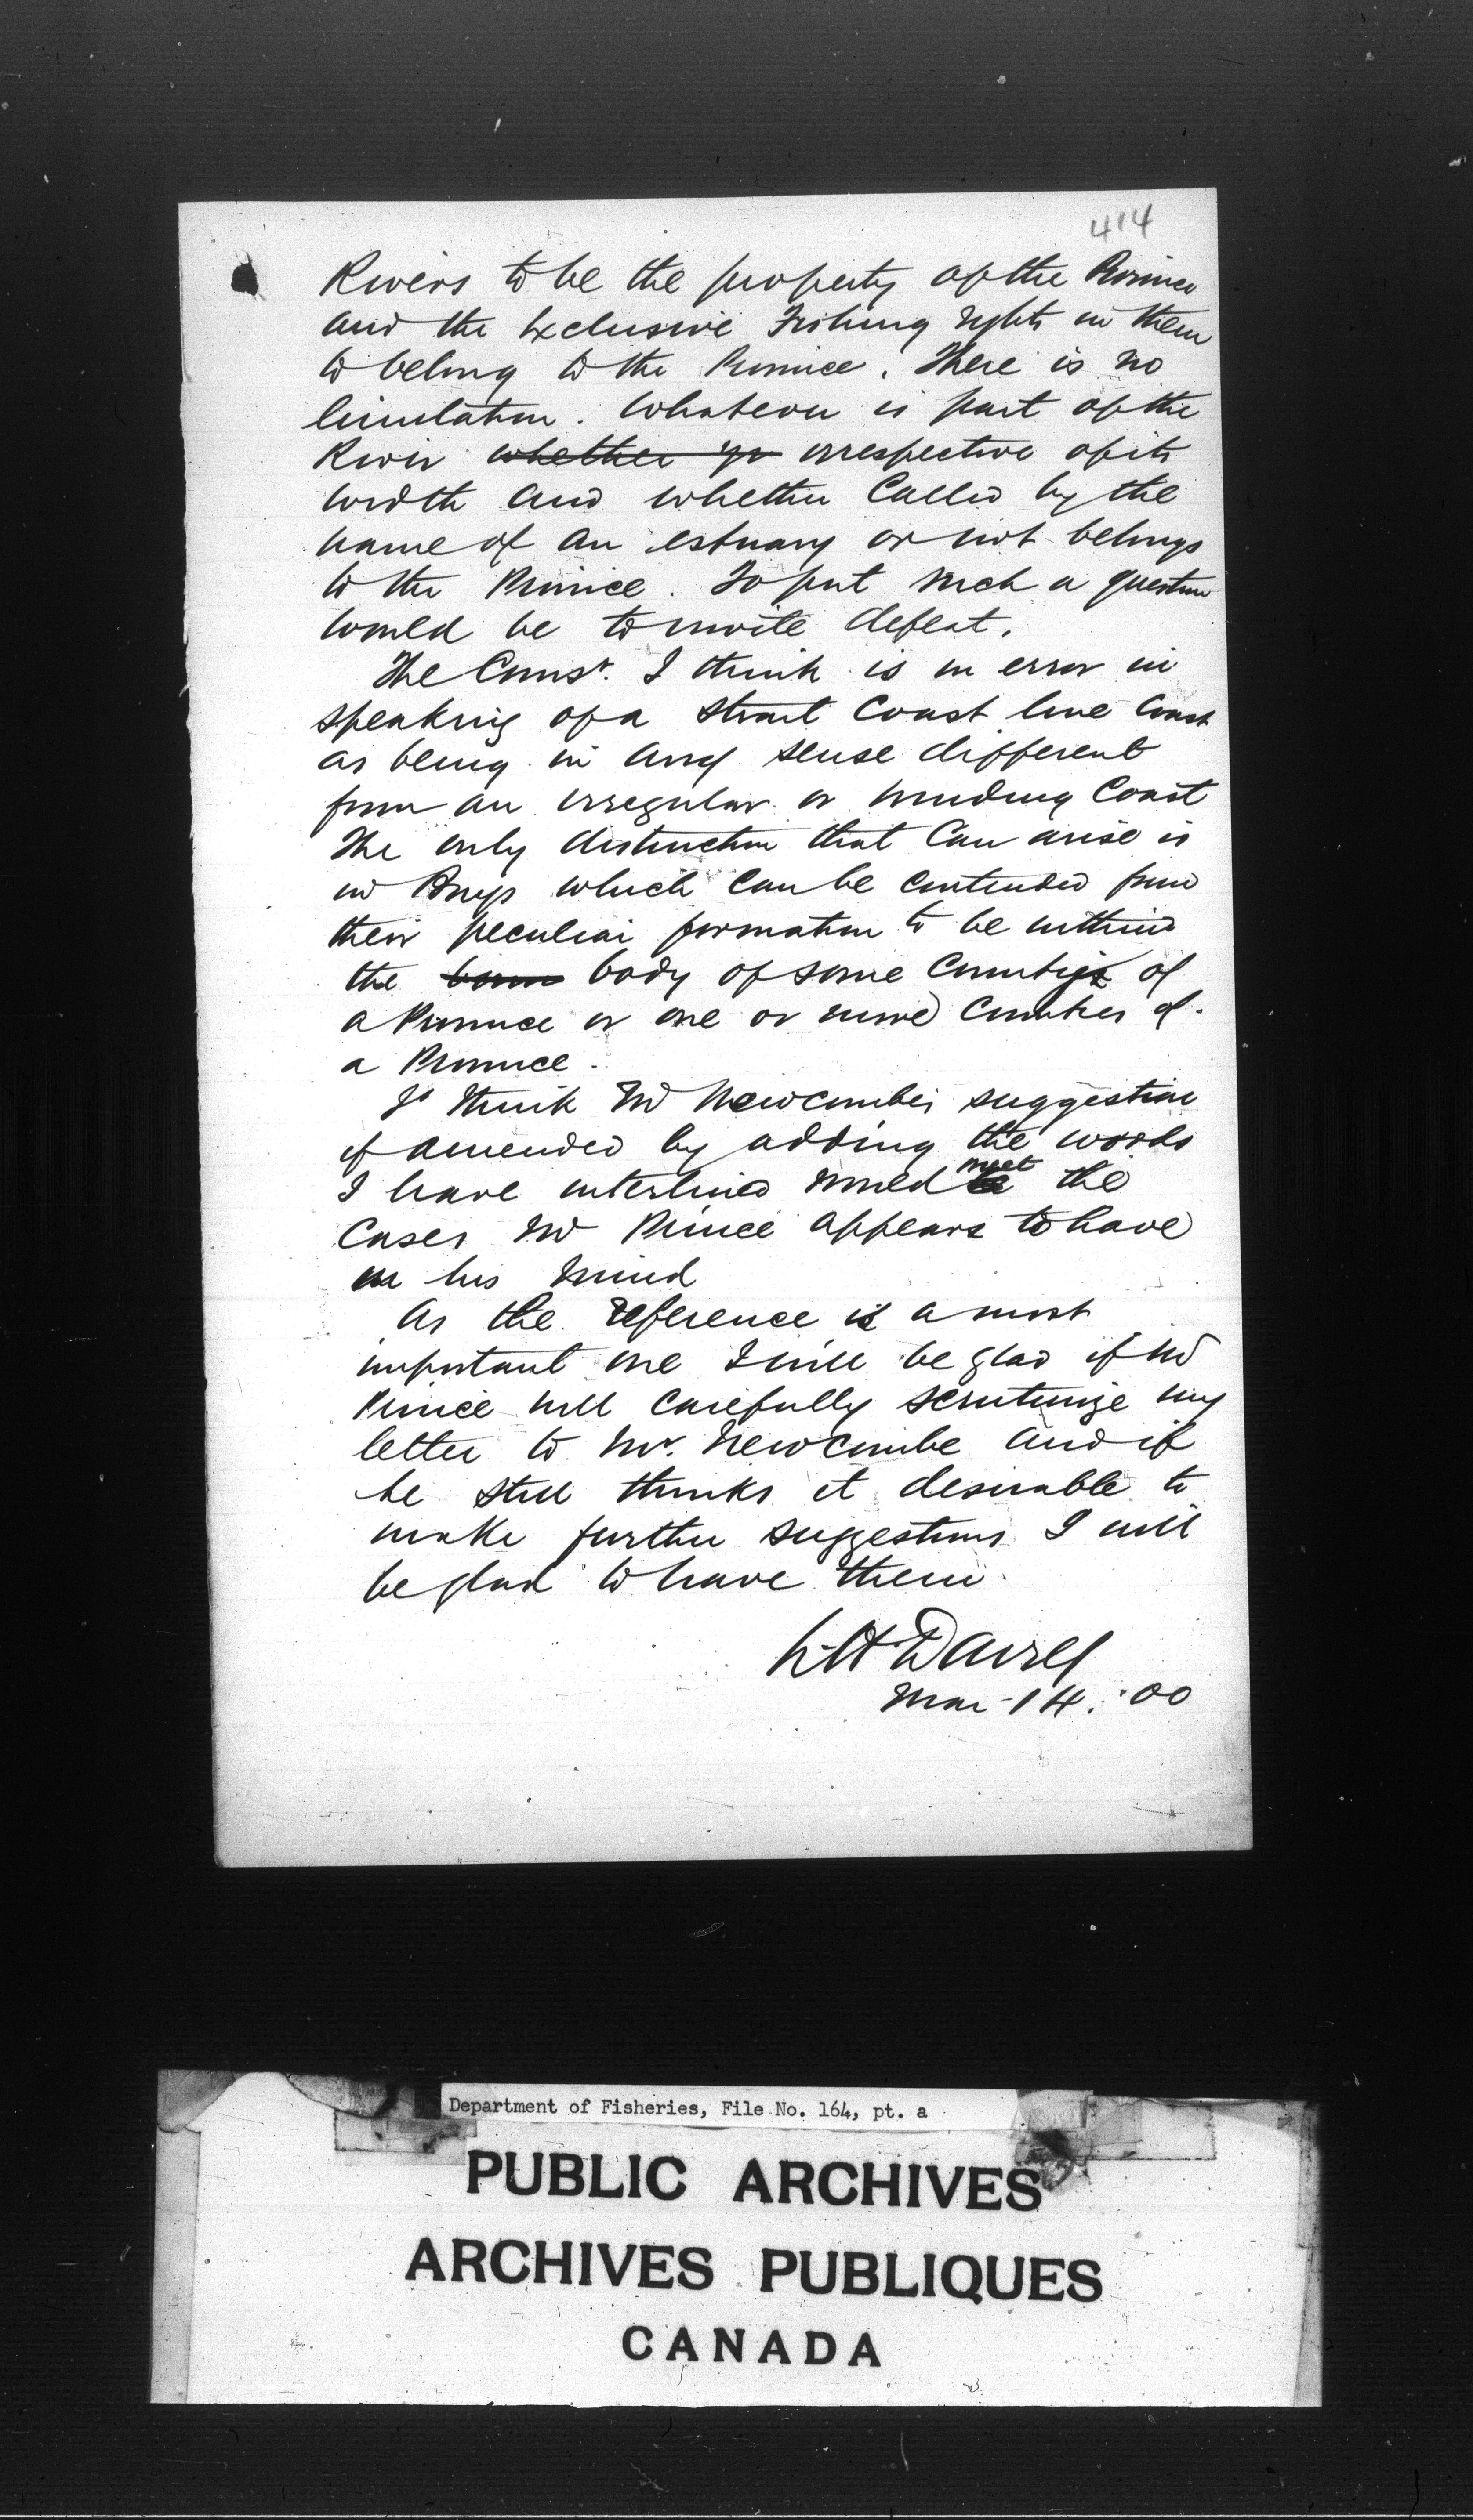 414
Rivers to be the property of the Province
and the exclusive Fishing rights in them
to belong to the Province. There is no
limitation. Whatever is part of the
River whether or irrespective of its
width and whether called by the
name of an estuary or not belongs
to the Province. To put such a question
would be to invite defeat.
The Comsr. I think is in error in
speaking of a strait Coast line Coast
as being in any sense different
from an irregular or winding Coast
The only distinction that can arise is
in Bays which can be contended from
their peculiar formation to be within
the body of some Counties of
a Province or one or more Counties of
a Province.
I think Mr Newcombes suggestion
if amended by adding the words
I have interlined would meet the
Cases Mr Prince appears to have
in his mind
As the reference is a most
important one I will be glad if Mr
Prince will carefully scrutinize my
letter to Mr. Newcombe and if
he still thinks it desirable to
make further suggestions I will
be glad to have them.
L H Davies
Mar 14. '00
Department of Fisheries, File No. 164, pt. a
PUBLIC ARCHIVES
ARCHIVES PUBLIQUES
CANADA